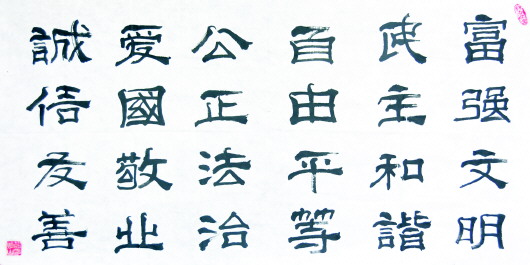 富强文明
民主和諧
自由平等
公正法治
爱國敬业
誠信友善